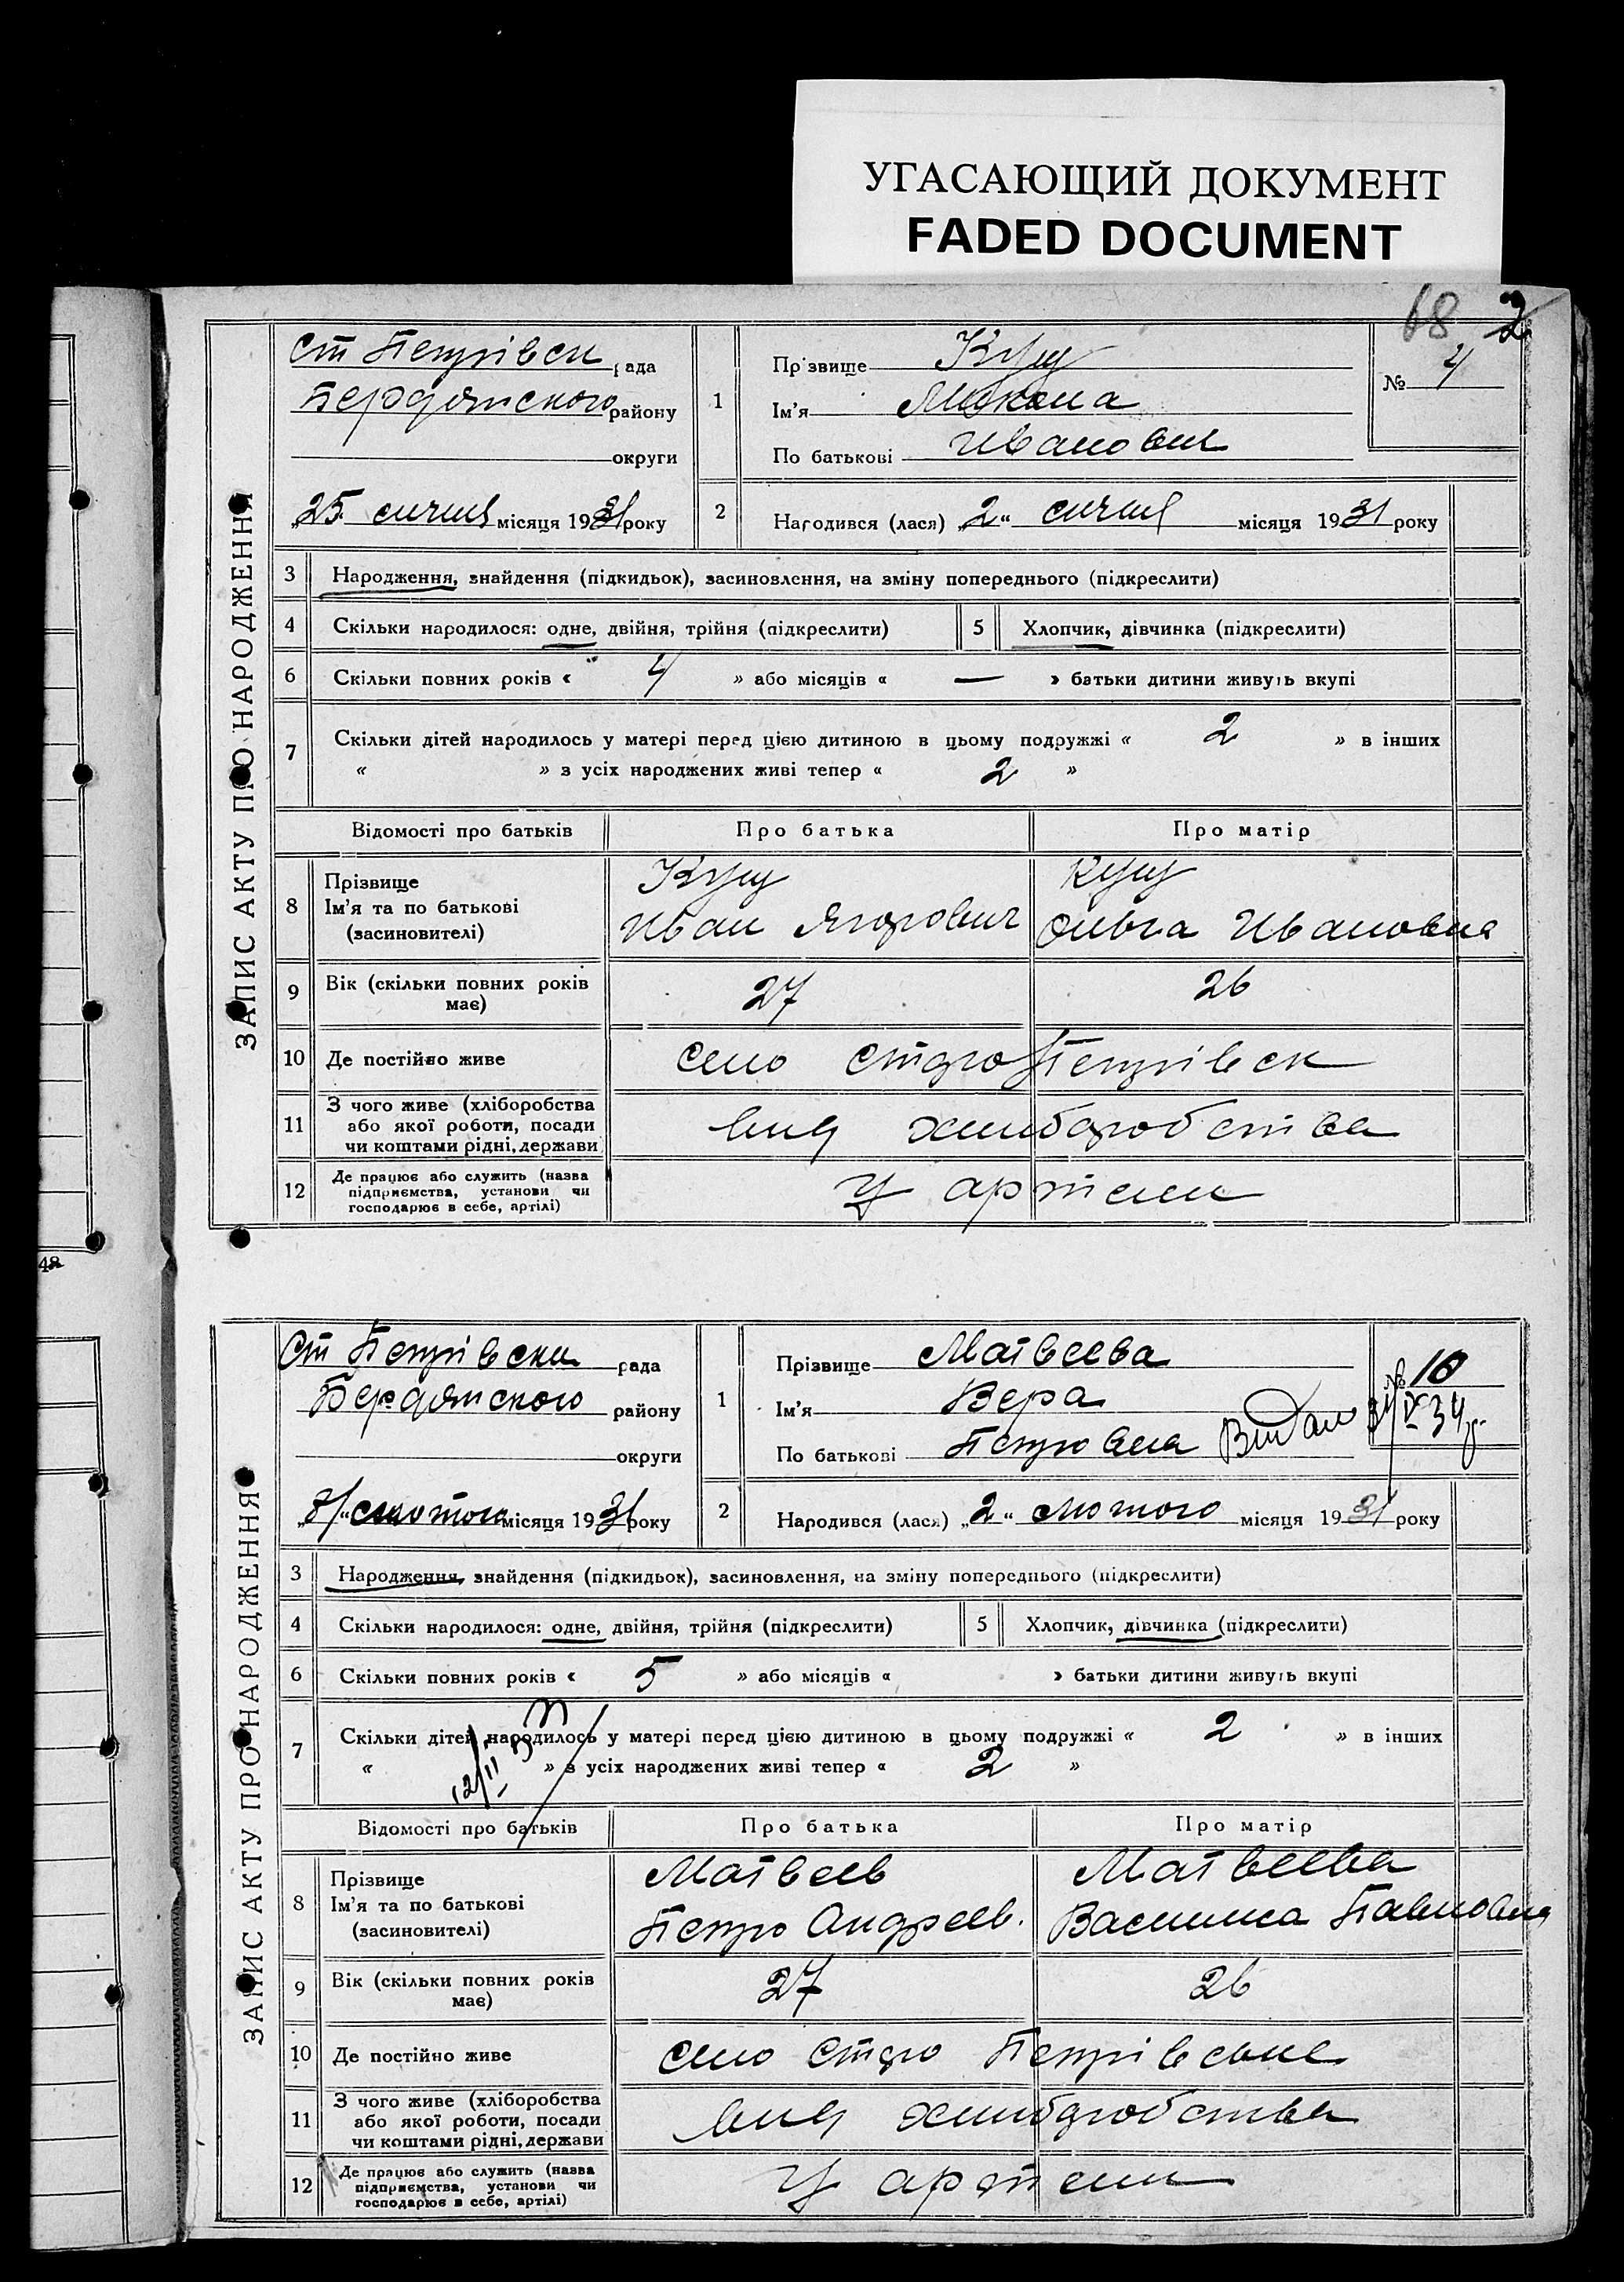 УГАСАЮЩИЙ ДОКУМЕНТ
FADED DOCUMENT
68 2
ЗАПИС АКТУ ПРО НАРОДЖЕННЯ
Ст Петрівск рада
Бердянского району
округи
„25“ січня місяця 1931 року
1
Прізвище Кущ
Ім'я Микола
По батькові Иванович
№ 4
2
Народився (лася) „2“ січня місяця 1931 року
3 Народження, знайдення (підкидьок), засиновлення, на зміну попереднього (підкреслити)
4 Скільки народилося: одне, двійня, трійня (підкреслити) 5 Хлопчик, дівчинка (підкреслити)
6 Скільки повних років « 4 » або місяців « — » батьки дитини живуть вкупі
7 Скільки дітей народилось у матері перед цією дитиною в цьому подружжі « 2 » в інших
« » з усіх народжених живі тепер « 2 »
Відомості про батьків Про батька Про матір
8 Прізвище
Ім'я та по батькові
(засиновителі)
Кущ
Иван Ягорович
Кущ
Ольга Ивановна
9 Вік (скільки повних років
має)
27 26
10 Де постійно живе село Старо Петрівск
11 З чого живе (хліборобства
або якої роботи, посади
чи коштами рідні, держави
вид хлиборобства
12 Де працює або служить (назва
підприємства, установи чи
господарює в себе, артілі)
У артели
48
ЗАПИС АКТУ ПРО НАРОДЖЕННЯ
Ст Петрівски рада
Бердянского району
округи
„8“ лютого місяця 1931 року
1
Прізвище Матвеева
Ім'я Вера
По батькові Петровна
№ 10
2
Народився (лася) „2“ лютого місяця 1931 року
3 Народження, знайдення (підкидьок), засиновлення, на зміну попереднього (підкреслити)
4 Скільки народилося: одне, двійня, трійня (підкреслити) 5 Хлопчик, дівчинка (підкреслити)
6 Скільки повних років « 5 » або місяців « » батьки дитини живуть вкупі
7 Скільки дітей народилось у матері перед цією дитиною в цьому подружжі « 2 » в інших
« » з усіх народжених живі тепер « 2 »
Відомості про батьків Про батька Про матір
8 Прізвище
Ім'я та по батькові
(засиновителі)
Матвеев
Петро Андреев.
Матвеева
Василиса Павловна
9 Вік (скільки повних років
має)
27 26
10 Де постійно живе село Старо Петрівське
11 З чого живе (хліборобства
або якої роботи, посади
чи коштами рідні, держави
вид хлиборобства
12 Де працює або служить (назва
підприємства, установи чи
господарює в себе, артілі)
У артели